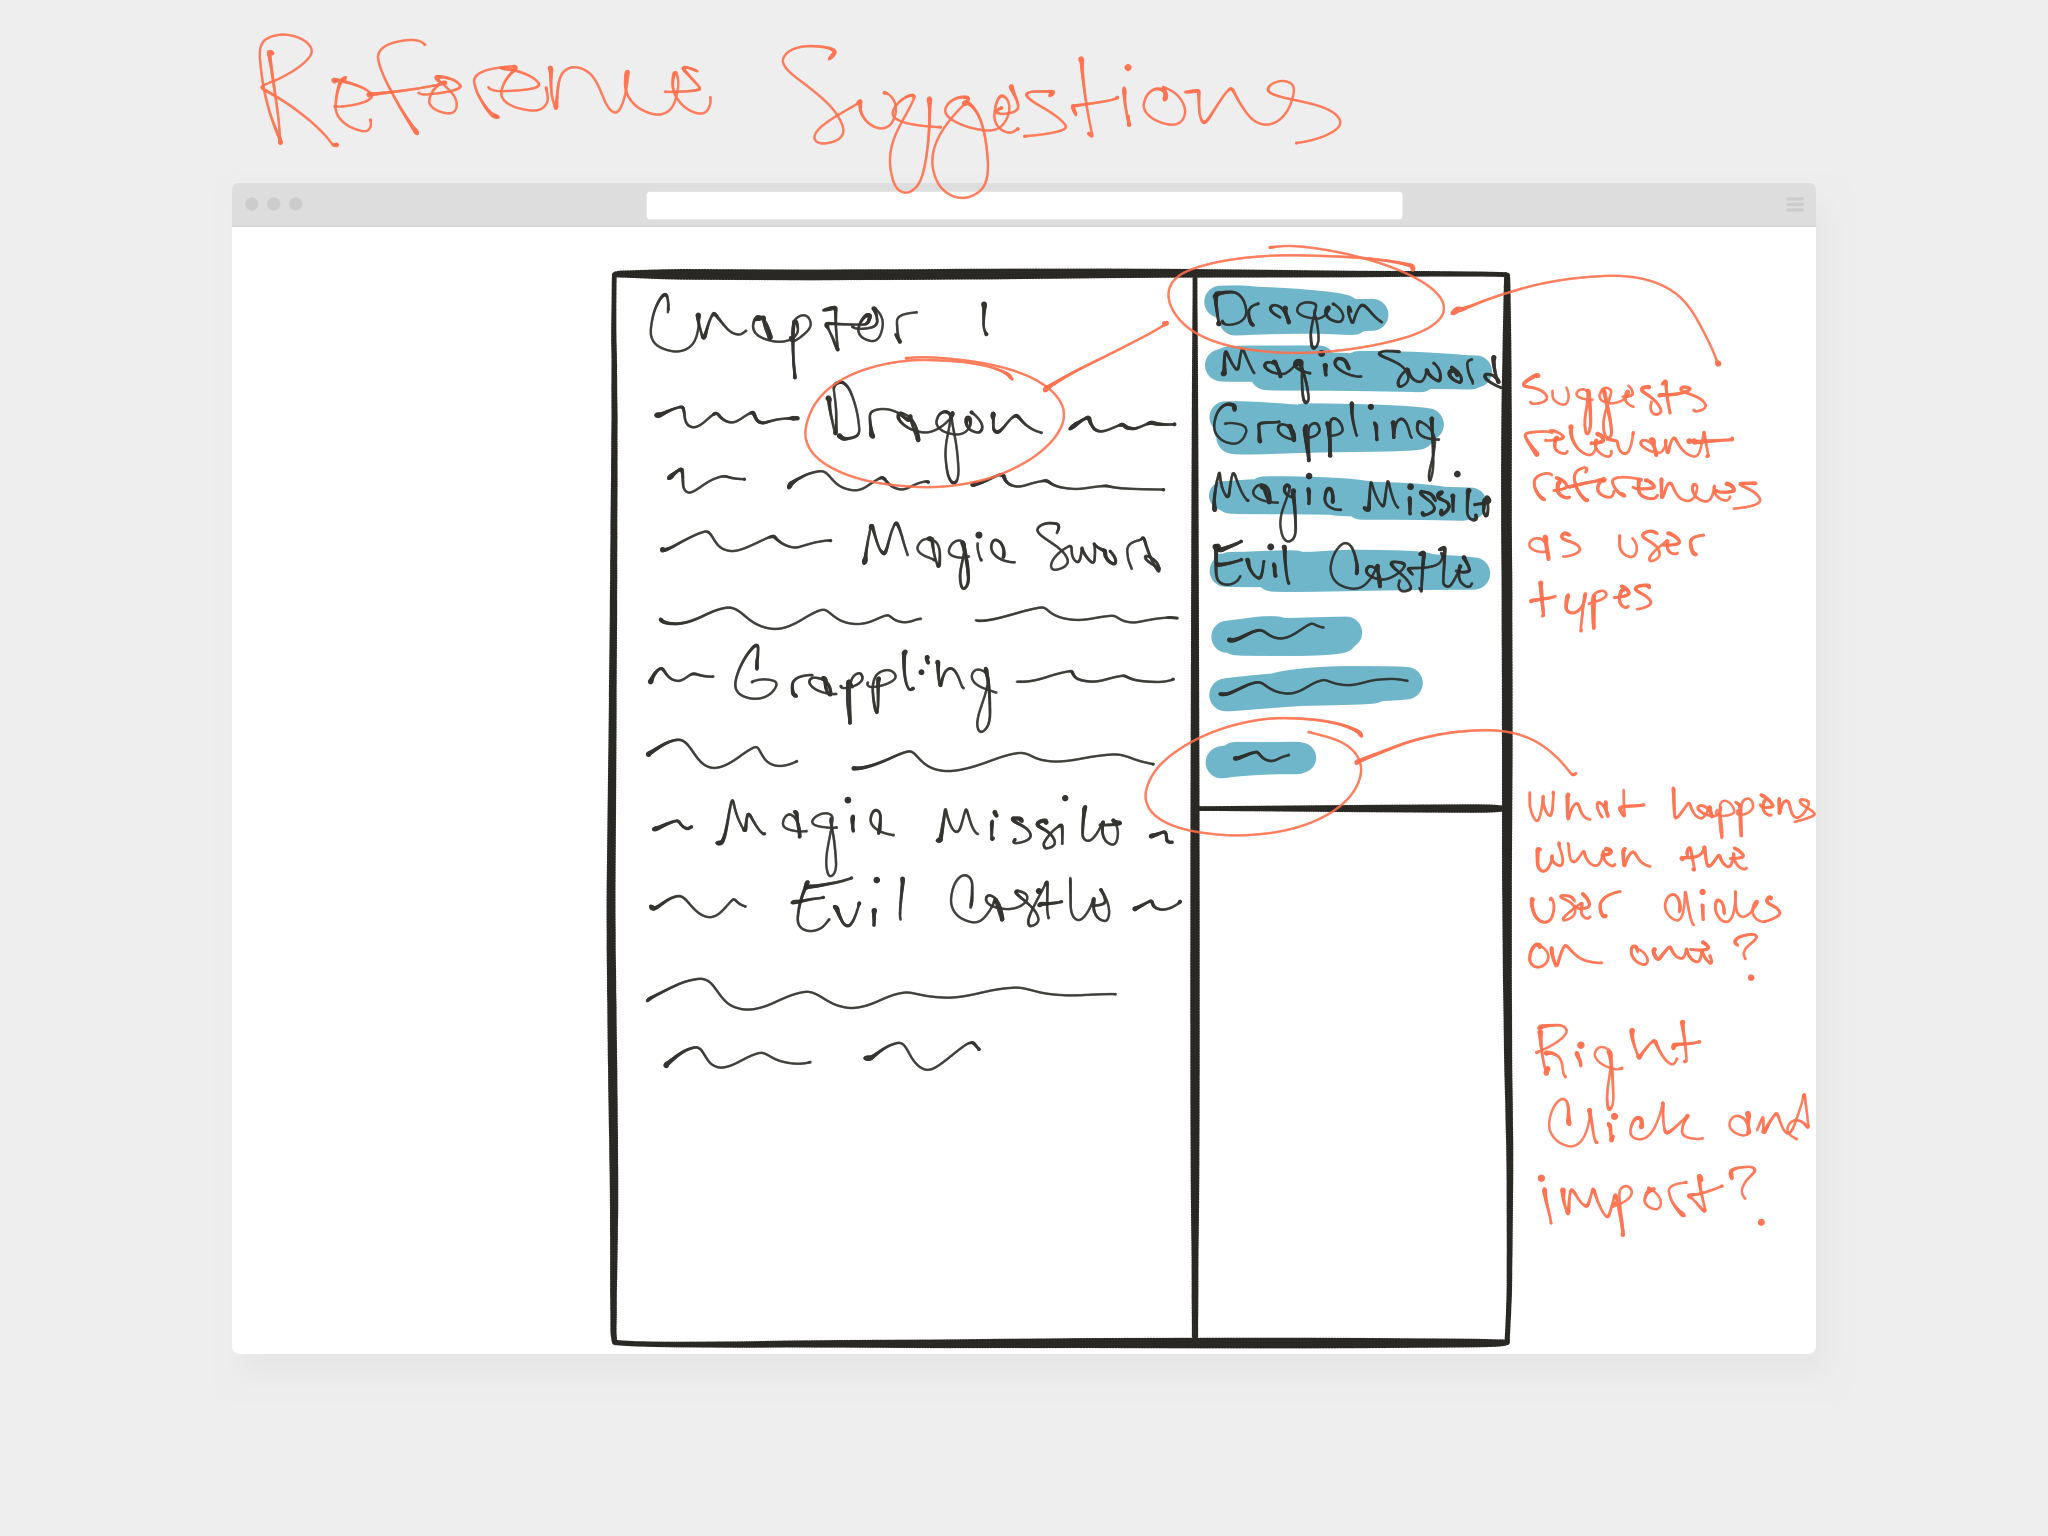 Reference Suggestions
Chapter 1
Dragon
Magic Sword
Grappling
Magic Missile
Evil Castle
Dragon
Magic Sword
Grappling
Magic Missile
Evil Castle
Suggests
relevant
references
as user
types
What happens
when the
user clicks
on one?
Right
Click and
import?